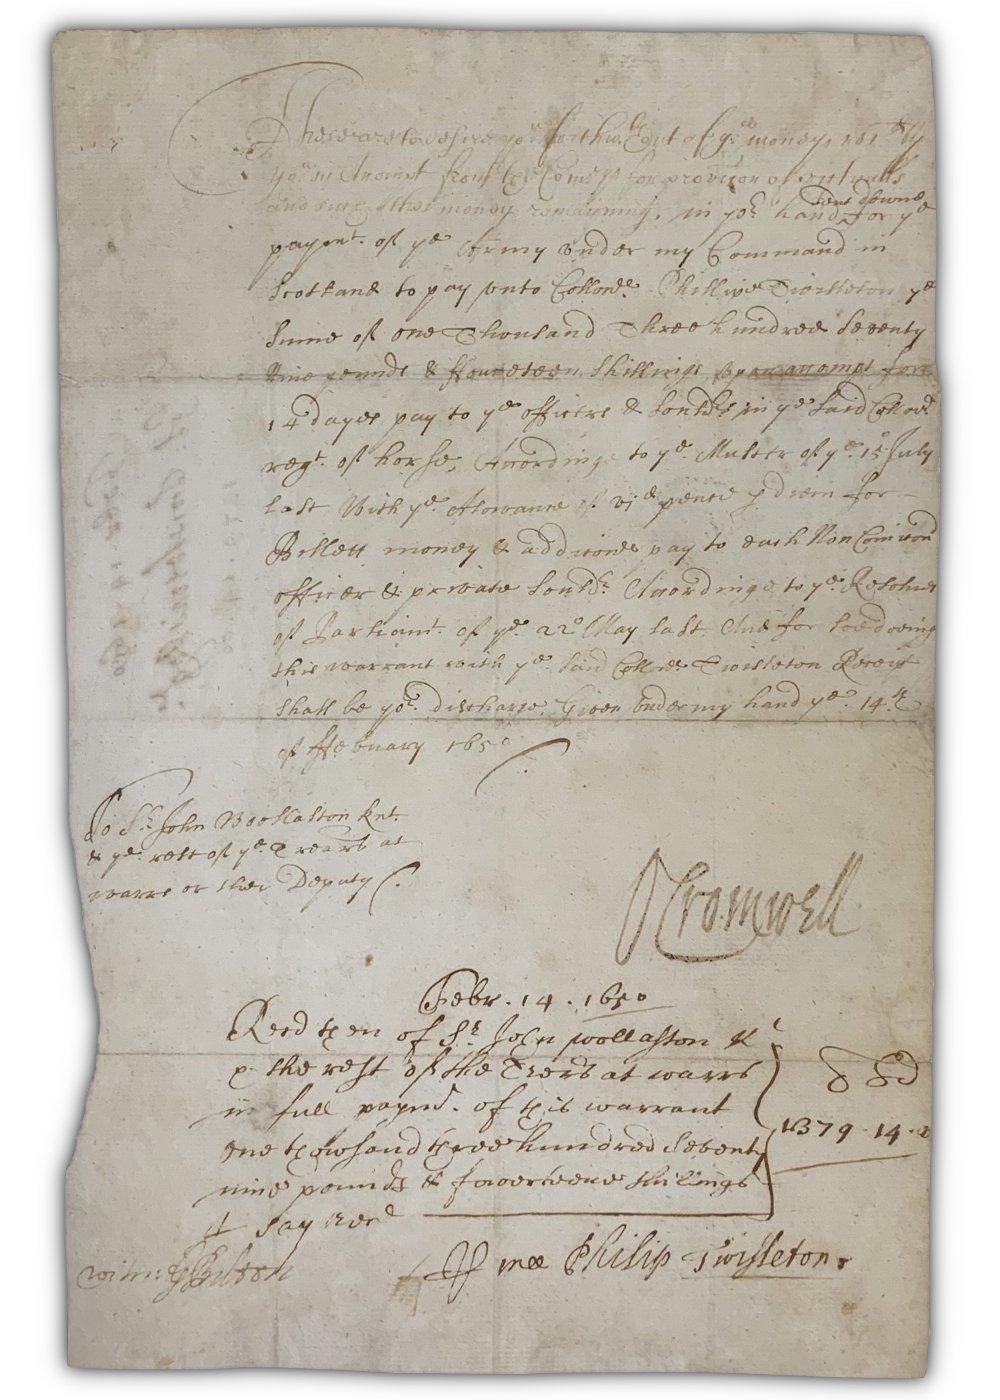 These are to desire you forthwth. Out of ye. moneys
you in Accompt from the Comrs. for provicon of victualls
and such other moneys remaininge, in yor. hands for ye
sent downe
paymt. of ye Army under my Command in
Scotland to pay unto Collonel. Phillipe Twisleton ye
Summe of one Thousand Three hundred Seventy
Nine pounds & ffourteen Shillings upon accompt for
14 dayes pay to ye officers & Souldrs in ye said Collonls
regt. of horse, Accordinge to ye. Muster of ye. 15o July
last With ye. Alowance of vjd. pence p diem for
Billett money & addiconal pay to each Non Comicond
officer & private Souldr. Accordinge to ye. Resolves
of Parliamt. of ye. 22o May last. And for soe doeing
this warrant with ye. said Collonl. Twisleton Receipt
shall be yor. discharge. Given under my hand ye. 14th
of ffebuary 1650
To Sr. John Woollaston Knt.
& ye. rest of ye. Trears at
warre or their Deputy
OCromwell
Febr. 14. 1650
Recd then of Sr. John Wollaston &
the rest of the Trers at warrs
in full paymt. of this warrant
one thowsand three hundred Seventy
nine pounds & fowerteene shilings
I say Recd
l s d
1379. 14. 0
p mee Philip Twisleton.
witnes Bilton